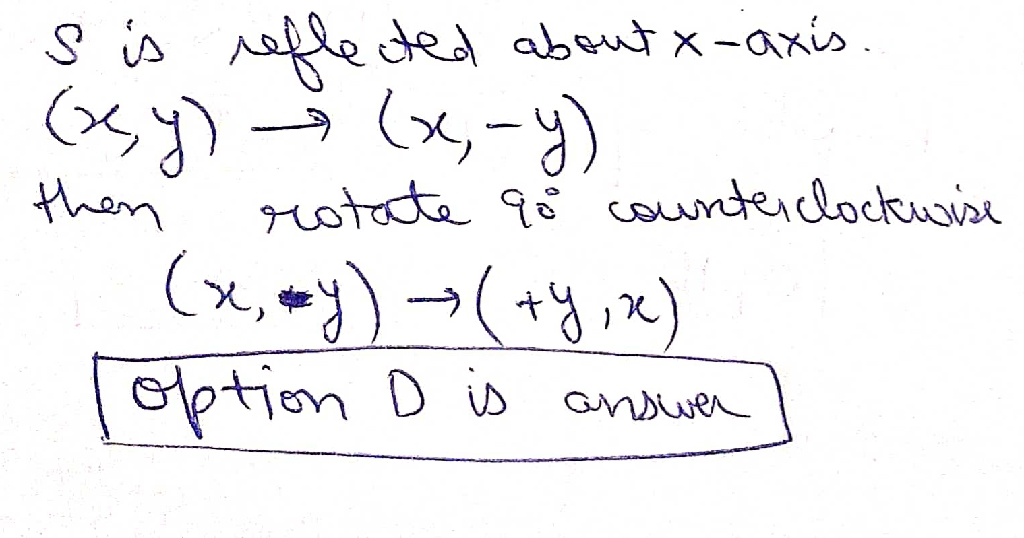 S is reflected about x-axis.
(x, y) → (x, -y)
then rotate 90° counterclockwise
(x, y) → (+y, x)
option D is answer